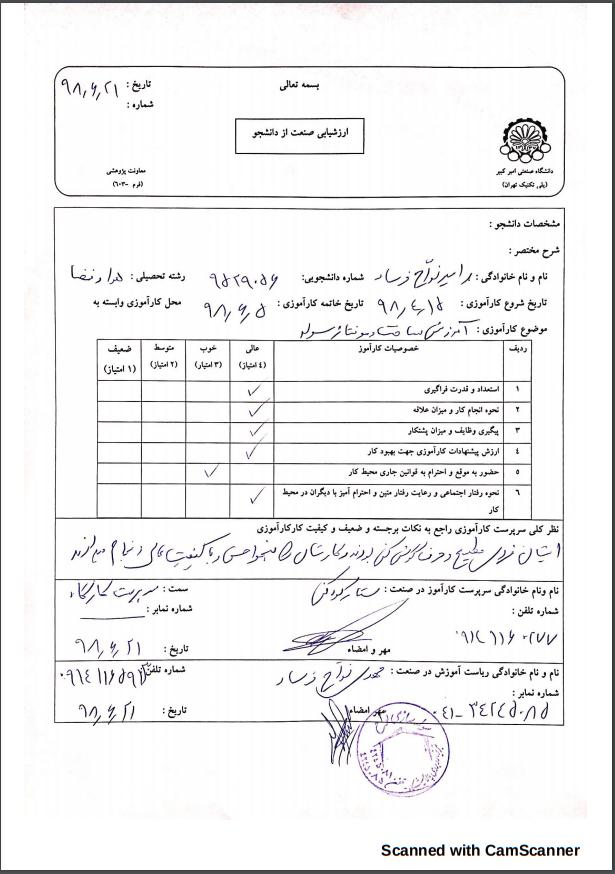 بسمه تعالی
تاریخ : ۹۸,۶,۲۱
شماره :
ارزشیابی صنعت از دانشجو
دانشگاه صنعتی امیر کبیر
(پلی تکنیک تهران)
معاونت پژوهشی
(فرم -۶۰۳)
مشخصات دانشجو :
شرح مختصر :
نام و نام خانوادگی : امیر فرساد شماره دانشجویی: ۹۵۲۹۰۵۶ رشته تحصیلی : هوا و فضا
تاریخ شروع کارآموزی : ۹۸,۴,۱۵ تاریخ خاتمه کارآموزی : ۹۸,۶,۵ محل کارآموزی وابسته به
موضوع کارآموزی : آموزش ساخت و مونتاژ
ردیف خصوصیات کارآموز عالی (۴ امتیاز) خوب (۳ امتیاز) متوسط (۲ امتیاز) ضعیف (۱ امتیاز)
۱ استعداد و قدرت فراگیری ✓
۲ نحوه انجام کار و میزان علاقه ✓
۳ پیگیری وظایف و میزان پشتکار ✓
۴ ارزش پیشنهادات کارآموزی جهت بهبود کار ✓
۵ حضور به موقع و احترام به قوانین جاری محیط کار ✓
۶ نحوه رفتار اجتماعی و رعایت رفتار متین و احترام آمیز با دیگران در محیط
کار ✓
نظر کلی سرپرست کارآموزی راجع به نکات برجسته و ضعیف و کیفیت کارکارآموزی
ایشان فردی مطیع و حرف گوش کن بودند و کارشان را بنحو احسن و با کیفیت عالی انجام میدادند
نام ونام خانوادگی سرپرست کارآموز در صنعت : ستار سمت : سرپرست کارگاه
شماره تلفن : شماره نمابر :
۰۹۱۴۱۱۶۰۲۷۷ مهر و امضاء تاریخ : ۹۸,۶,۲۱
نام و نام خانوادگی ریاست آموزش در صنعت : مهدی فرساد شماره تلفن:
شماره نمابر :
۰۴۱-۳۴۲۴۵۰۸۵ مهر امضاء تاریخ : ۹۸,۶,۲۱
Scanned with CamScanner